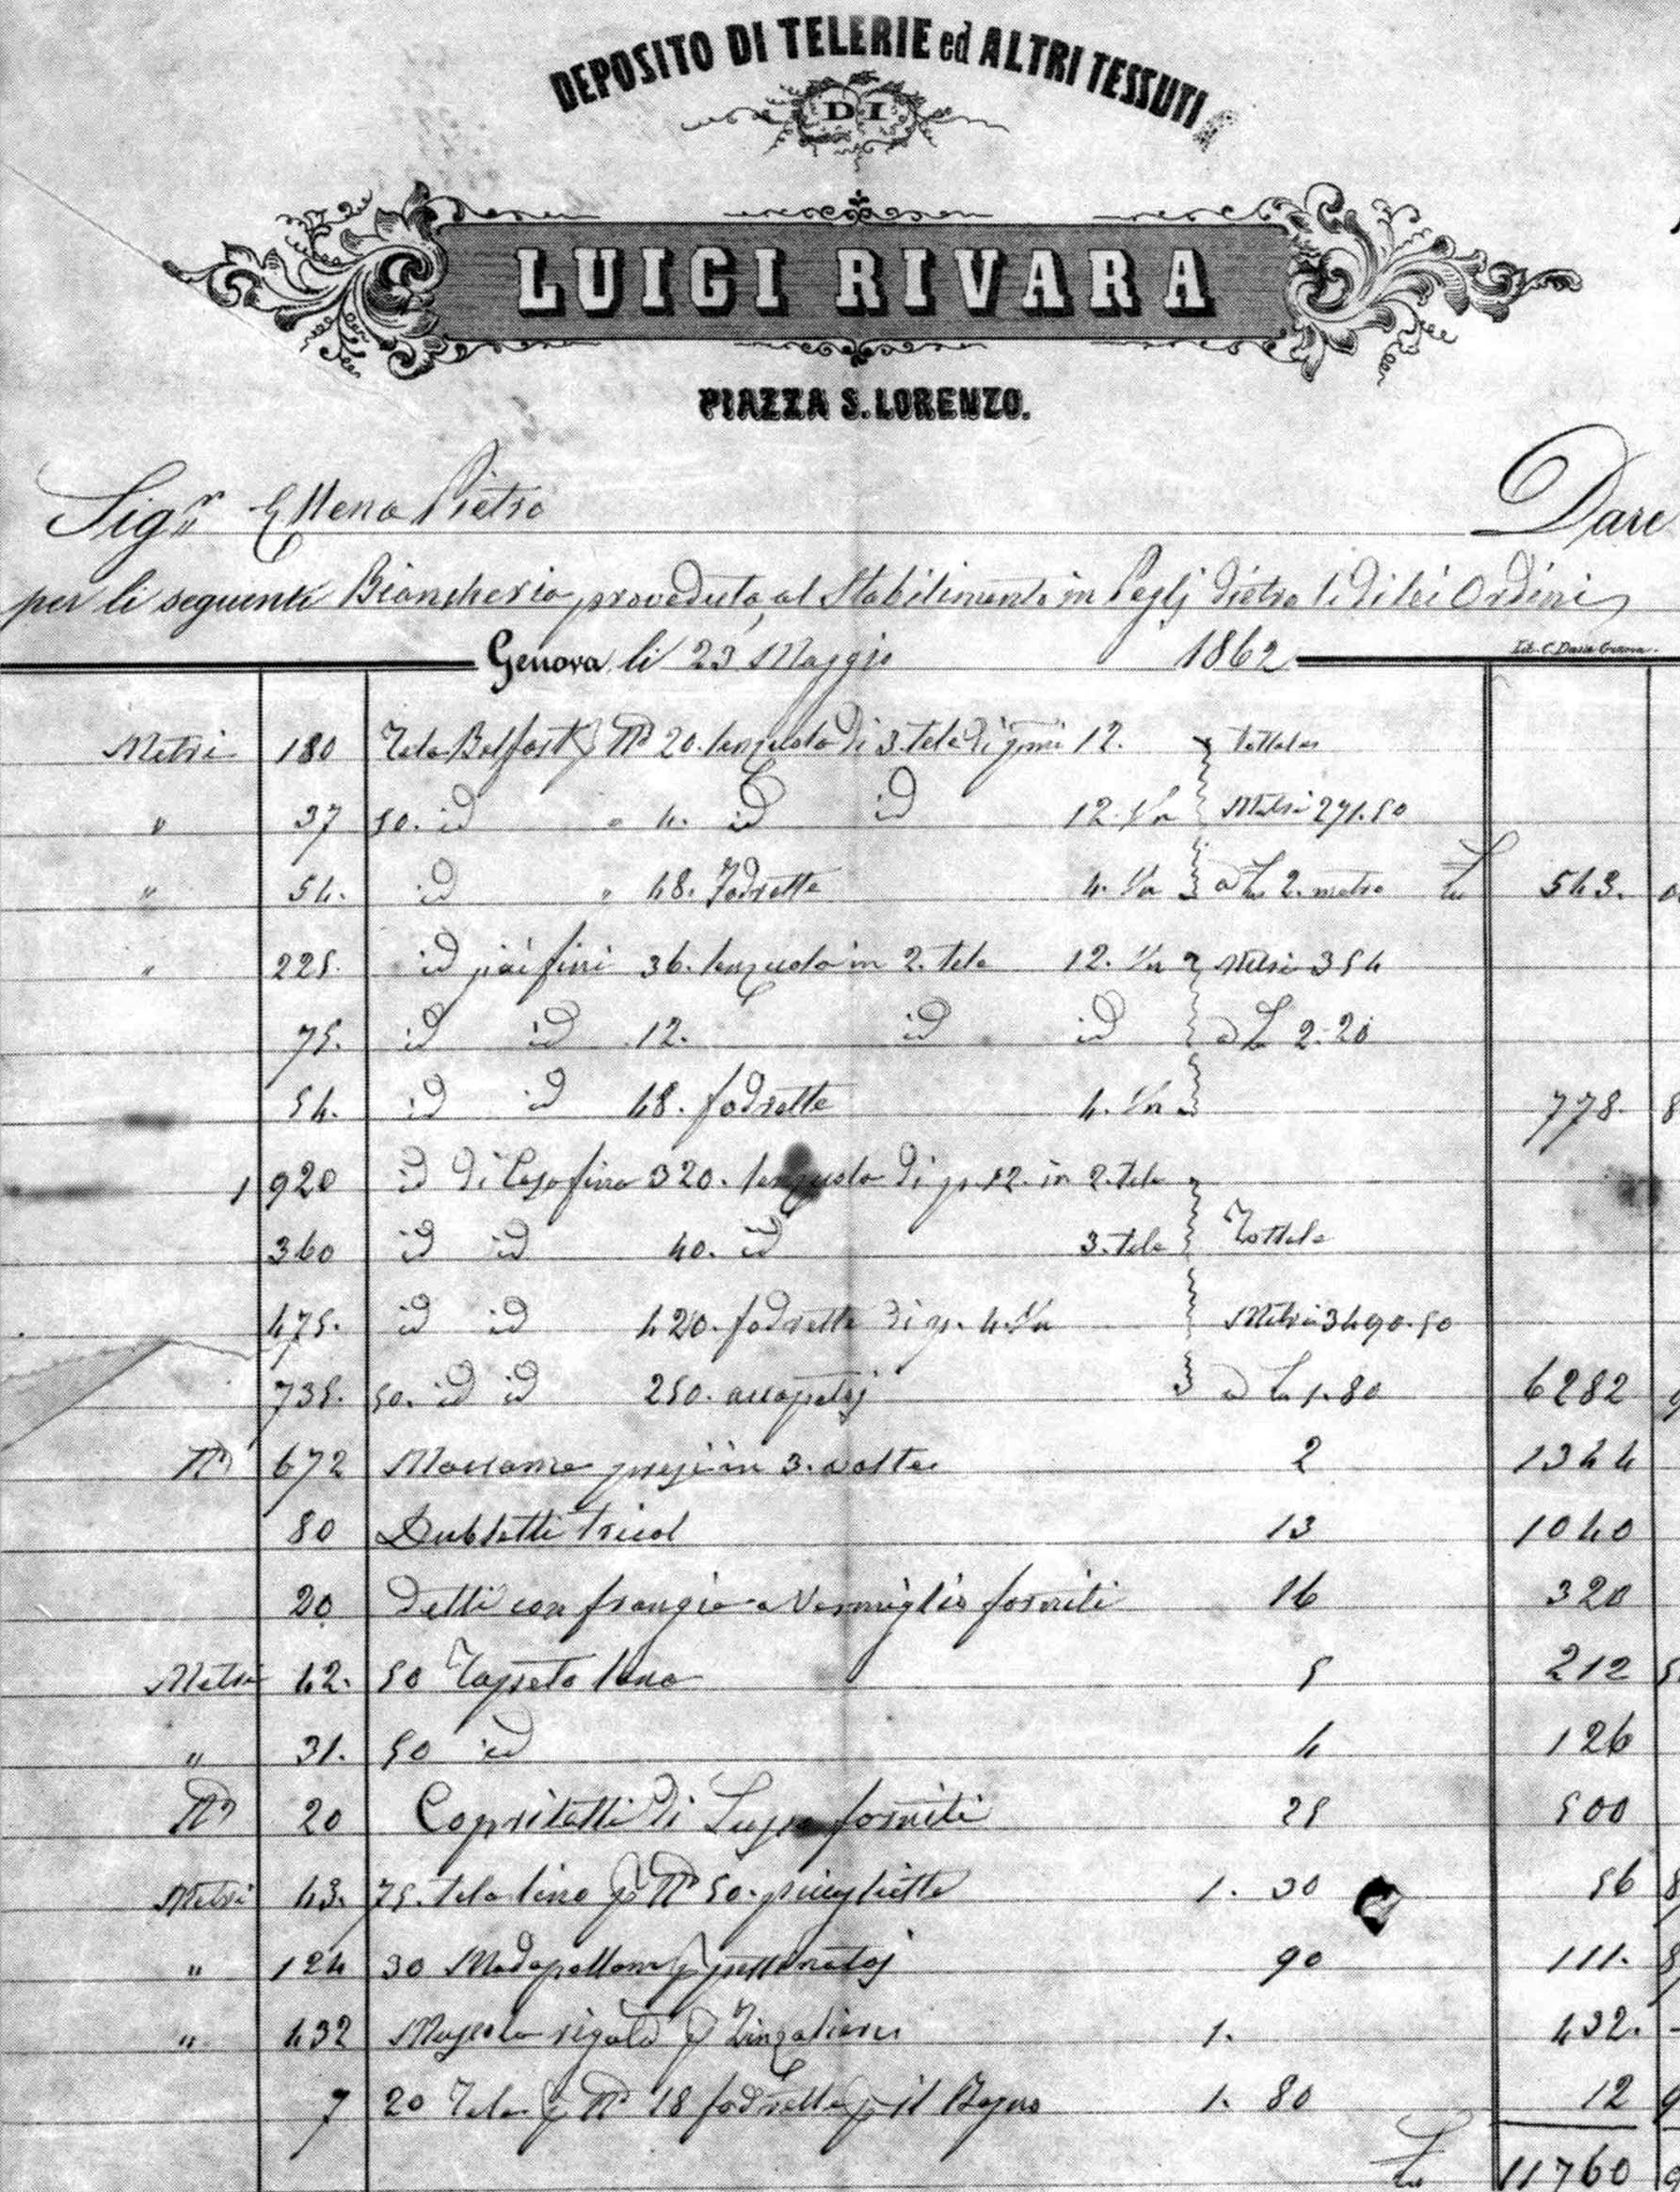 DEPOSITO DI TELERIE ed ALTRI TESSUTI
DI
LUIGI RIVARA
PIAZZA S. LORENZO.
Sigr Ellena Pietro Dare
per li seguenti Biancheria proveduta al Stabilimento in Peglj dietro li di lei Ordini
Genova li 23 Maggio 1862
Lit. C. Dasso Genova.
Metri 180 Tela Belfast p No 20. lenzuola di 3. tele di pmi 12. Tottale
" 37 50. id " 4. id id 12. 1/2 Metri 271.50
" 54. id " 48. Fodrette 4. 1/2 a Ln 2. metro Ln 543.
" 225. id più fini 36. lenzuola in 2. tele 12. 1/2 Metri 354
75. id id 12. id id a Ln 2.20
54. id id 48. fodrette 4. 1/2 778. 8
1 920 id di Casa fina 320. lenzuola di p. 12. in 2. tele
360 id id 40. id 3. tele Tottale
475. id id 420. fodrette di p. 4. 1/2 Metri 3490.50
735. 50. id id 250. accapatoj a Ln 1.80 6282 9
No 672 in 3. volte 2 1344
80 Dubletti tricol 13 1040
20 Detti con frangia a Vermiglio forniti 16 320
Metri 42. 50 Tappeto lana 5 212 5
" 31. 50 id 4 126
No 20 Copriletti di forniti 25 500
Metri 43. 75. tela lino p No 50. 1. 30 56 8
" 124 30 Madapollam p pettinatoj 90 111. 8
" 432 rigata p Zinzaliere 1. 432. -
7 20 Tela p No 18 fodrette p il Bagno 1. 80 12 9
Ln 11760